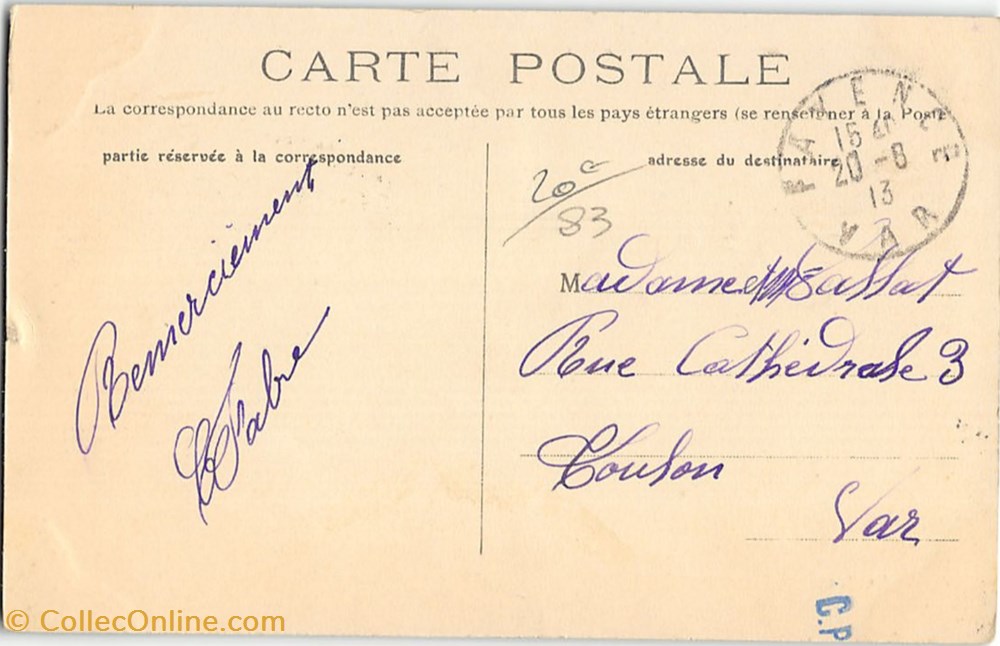 CARTE POSTALE
La correspondance au recto n'est pas acceptée par tous les pays étrangers (se renseigner à la Poste
partie réservée à la correspondance
adresse du destinataire
FAYENCE
15 40
20 -8
13
VAR
20c
83
Remerciement
Fabre
Madame
Rue Cathédrale 3
Toulon
Var
C.P
© CollecOnline.com